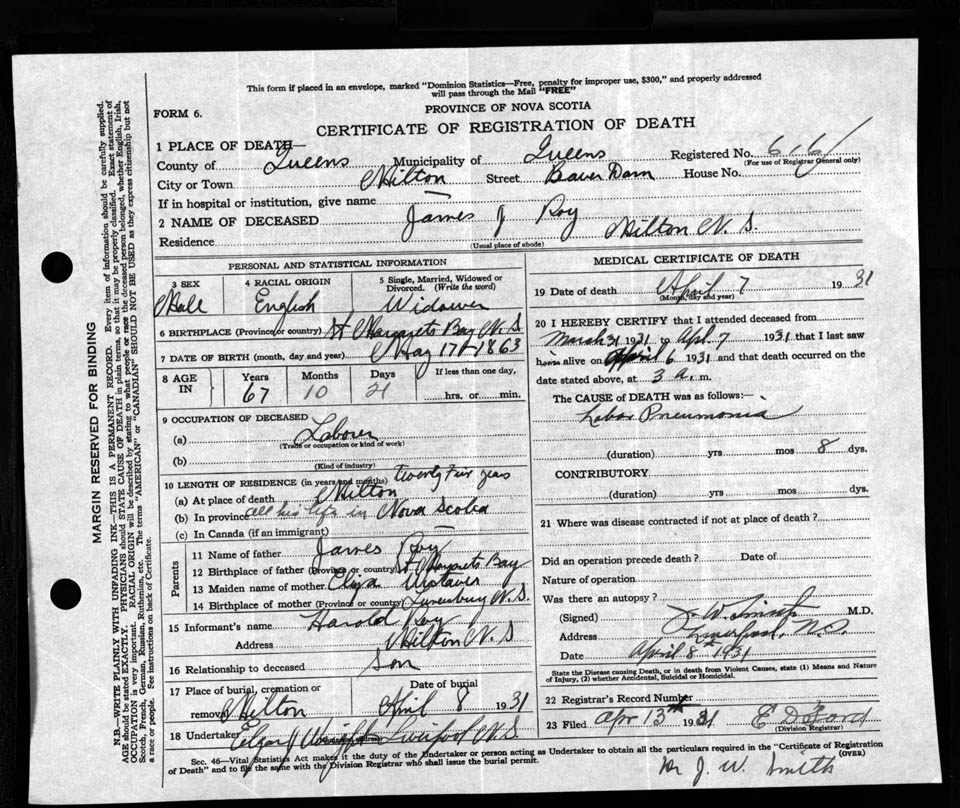 This form if placed in an envelope, marked "Dominion Statistics—Free, penalty for improper use, $300," and properly addressed
will pass through the Mail "FREE"
PROVINCE OF NOVA SCOTIA
FORM 6.
CERTIFICATE OF REGISTRATION OF DEATH
1 PLACE OF DEATH—
County of Queens Municipality of Queens Registered No. 616
(For use of Registrar General only)
City or Town Milton Street Beaver Dam House No.
If in hospital or institution, give name —
2 NAME OF DECEASED James J Roy
Residence Milton N. S.
(Usual place of abode)
PERSONAL AND STATISTICAL INFORMATION
3 SEX Male
4 RACIAL ORIGIN English
5 Single, Married, Widowed or Divorced. (Write the word) Widower
6 BIRTHPLACE (Province or country) St Margarets Bay N. S
7 DATE OF BIRTH (month, day and year) May 17th 1863
8 AGE IN Years 67 Months 10 Days 21 If less than one day, hrs. or min.
9 OCCUPATION OF DECEASED
(a) Laborer
(Trade or occupation or kind of work)
(b)
(Kind of industry)
10 LENGTH OF RESIDENCE (in years and months) twenty five years
(a) At place of death Milton
(b) In province all his life in Nova Scotia
(c) In Canada (if an immigrant) —
Parents
11 Name of father James Roy
12 Birthplace of father (Province or country) St Margarets Bay
13 Maiden name of mother Eliza
14 Birthplace of mother (Province or country) Lunenburg N. S.
15 Informant's name Harold Roy
Address Milton N. S
16 Relationship to deceased Son
17 Place of burial, cremation or removal Milton
Date of burial April 8 1931
18 Undertaker Liverpool N. S
MEDICAL CERTIFICATE OF DEATH
19 Date of death April 7 1931
(Month, day and year)
20 I HEREBY CERTIFY that I attended deceased from
March 31 1931 to Apl. 7 1931 that I last saw
him alive on April 6 1931 and that death occurred on the
date stated above, at 3 a. m.
The CAUSE of DEATH was as follows:—
Lobar Pneumonia
(duration) yrs mos 8 dys.
CONTRIBUTORY
(duration) yrs mos dys.
21 Where was disease contracted if not at place of death?
Did an operation precede death? Date of
Nature of operation
Was there an autopsy?
(Signed) J W Smith M.D.
Address Liverpool, N.S.
Date April 8th 1931
State the Disease causing Death, or in death from Violent Causes, state (1) Means and Nature
of Injury, (2) whether Accidental, Suicidal or Homicidal.
22 Registrar's Record Number
23 Filed Apr 13th 1931 E D Ford
(Division Registrar)
(OVER)
Sec. 46—Vital Statistics Act makes it the duty of the Undertaker or person acting as Undertaker to obtain all the particulars required in the "Certificate of Registration
of Death" and to file the same with the Division Registrar who shall issue the burial permit.
Dr J. W. Smith
MARGIN RESERVED FOR BINDING
N.B.—WRITE PLAINLY WITH UNFADING INK—THIS IS A PERMANENT RECORD. Every item of information should be carefully supplied.
AGE should be stated EXACTLY. PHYSICIANS should STATE CAUSE OF DEATH in plain terms, so that it may be properly classified. Exact statement of
OCCUPATION is very important. RACIAL ORIGIN will be described by stating to what people or race the deceased person belonged, whether English, Irish,
Scotch, French, German, Russian, Ruthenian, etc. The terms "AMERICAN" or "CANADIAN" SHOULD NOT BE USED as they express citizenship but not
a race or people. See instructions on back of Certificate.